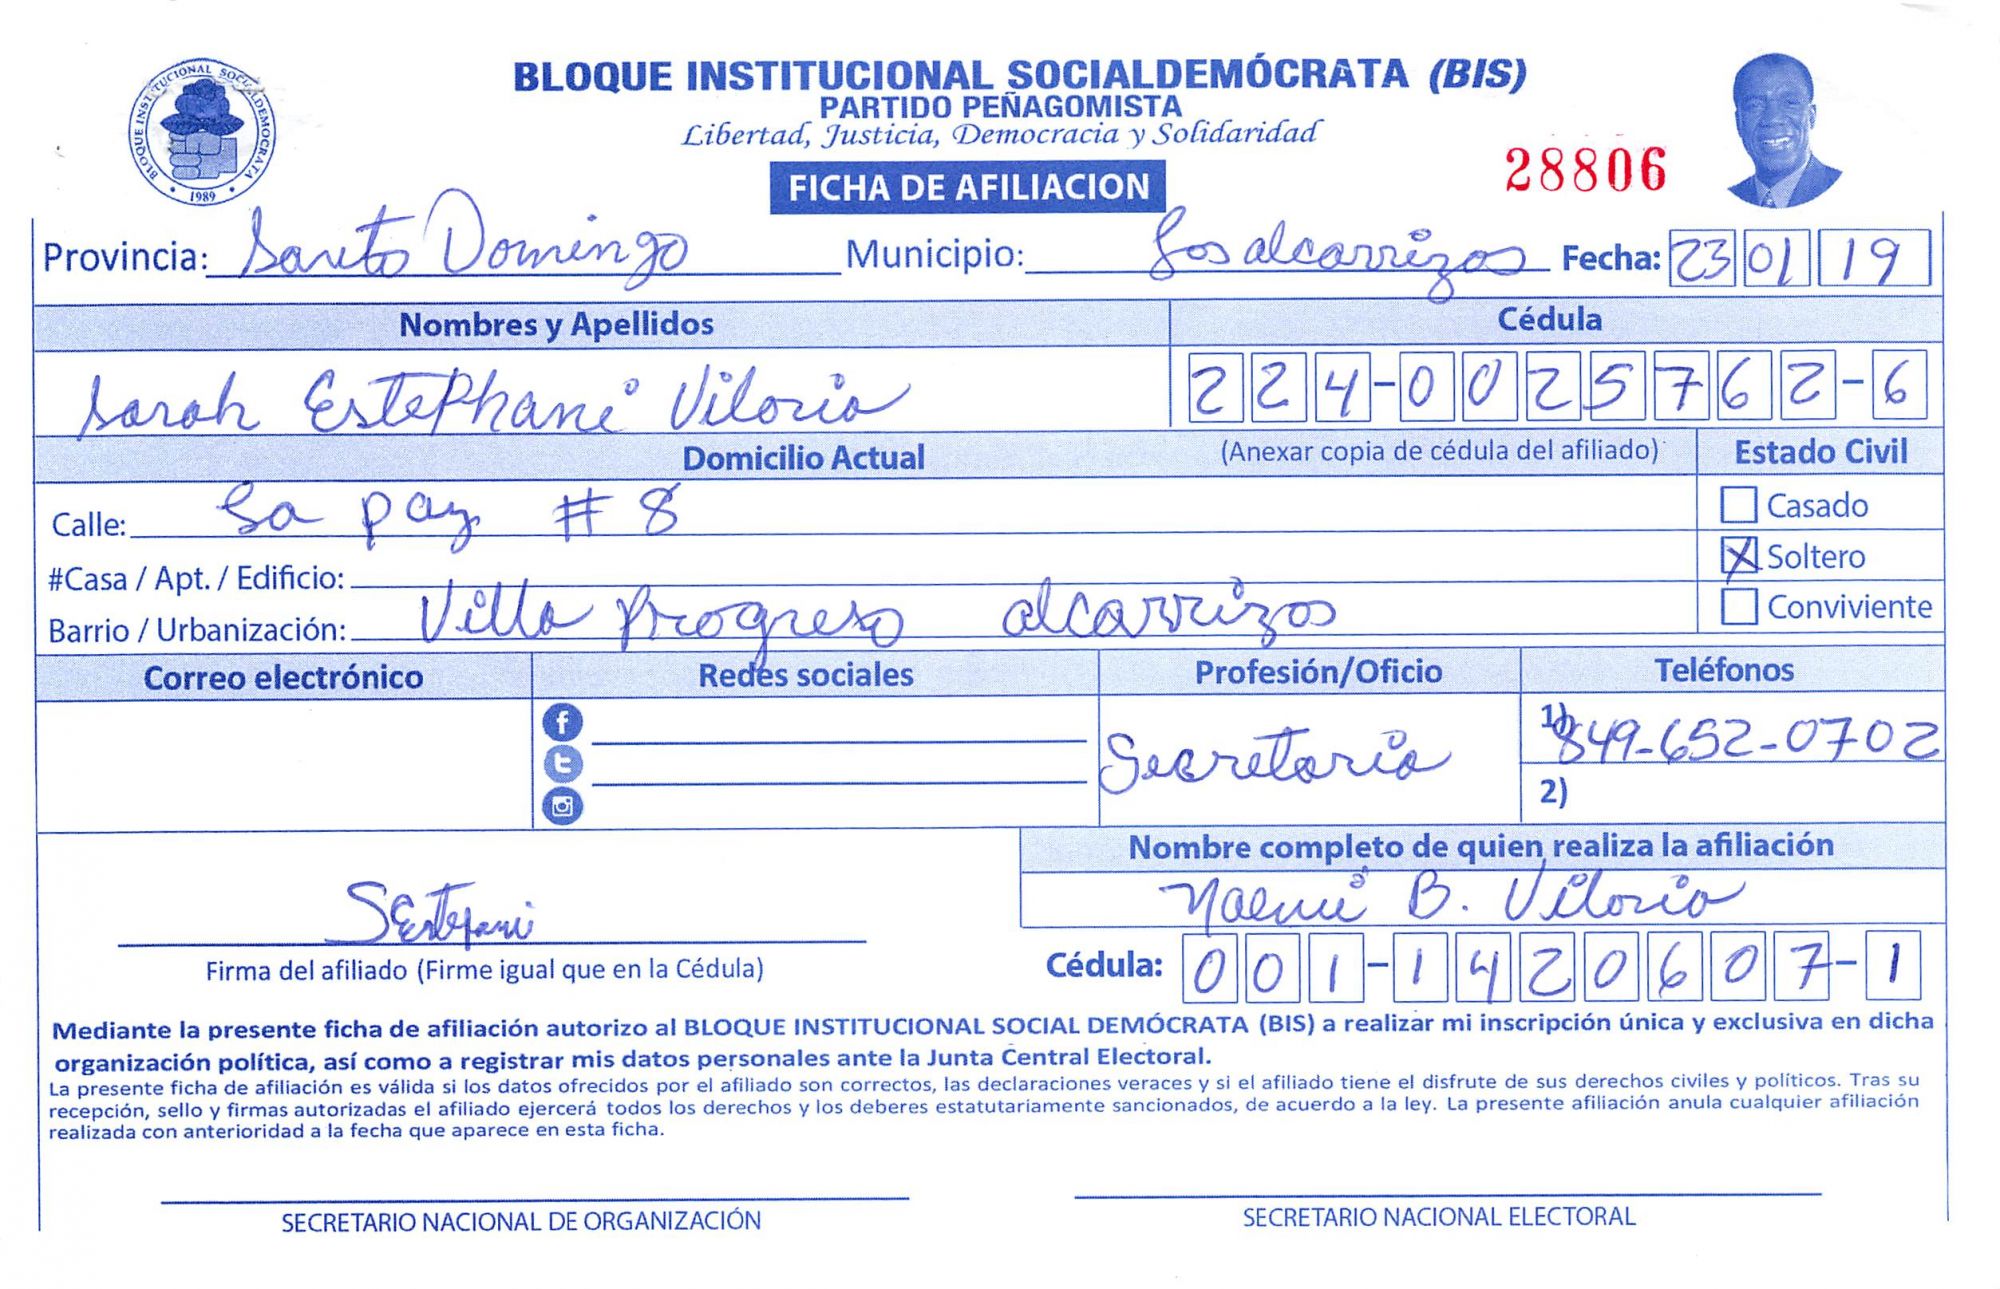 BLOQUE INSTITUCIONAL SOCIALDEMÓCRATA (BIS)
PARTIDO PEÑAGOMISTA
Libertad, Justicia, Democracia y Solidaridad
BLOQUE INSTITUCIONAL SOCIALDEMOCRATA
1989
28806
FICHA DE AFILIACION
Provincia: Santo Domingo Municipio: Los alcarrizos Fecha: 23 01 19
Nombres y Apellidos Cédula
Sarah Estephani Viloria 224-0025762-6
Domicilio Actual (Anexar copia de cédula del afiliado) Estado Civil
Calle: La paz # 8 Casado
#Casa / Apt. / Edificio: X Soltero
Barrio / Urbanización: Villa Progreso alcarrizos Conviviente
Correo electrónico Redes sociales Profesión/Oficio Teléfonos
Secretaria 1) 849-652-0702
2)
Nombre completo de quien realiza la afiliación
SEstefani Noemi B. Viloria
Firma del afiliado (Firme igual que en la Cédula) Cédula: 001-1420607-1
Mediante la presente ficha de afiliación autorizo al BLOQUE INSTITUCIONAL SOCIAL DEMÓCRATA (BIS) a realizar mi inscripción única y exclusiva en dicha
organización política, así como a registrar mis datos personales ante la Junta Central Electoral.
La presente ficha de afiliación es válida si los datos ofrecidos por el afiliado son correctos, las declaraciones veraces y si el afiliado tiene el disfrute de sus derechos civiles y políticos. Tras su
recepción, sello y firmas autorizadas el afiliado ejercerá todos los derechos y los deberes estatutariamente sancionados, de acuerdo a la ley. La presente afiliación anula cualquier afiliación
realizada con anterioridad a la fecha que aparece en esta ficha.
SECRETARIO NACIONAL DE ORGANIZACIÓN SECRETARIO NACIONAL ELECTORAL